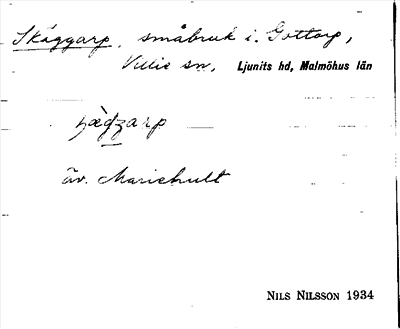 Skäggarp, småbruk i Gottorp,
Villie sn, Ljunits hd, Malmöhus län
äv. Mariehult
NILS NILSSON 1934